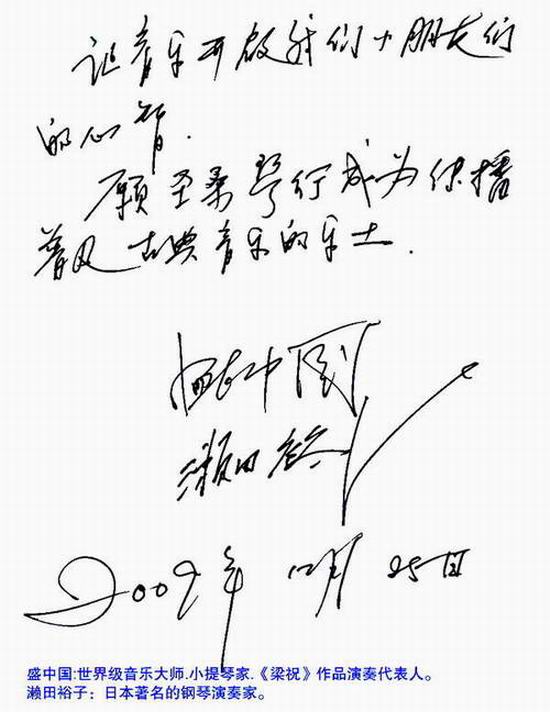 让音乐开启我们小朋友们
的心智.
愿圣桑琴行成为传播
普及古典音乐的乐土.
盛中国
濑田裕子
2009年12月25日
盛中国:世界级音乐大师.小提琴家.《梁祝》作品演奏代表人。
濑田裕子：日本著名的钢琴演奏家。